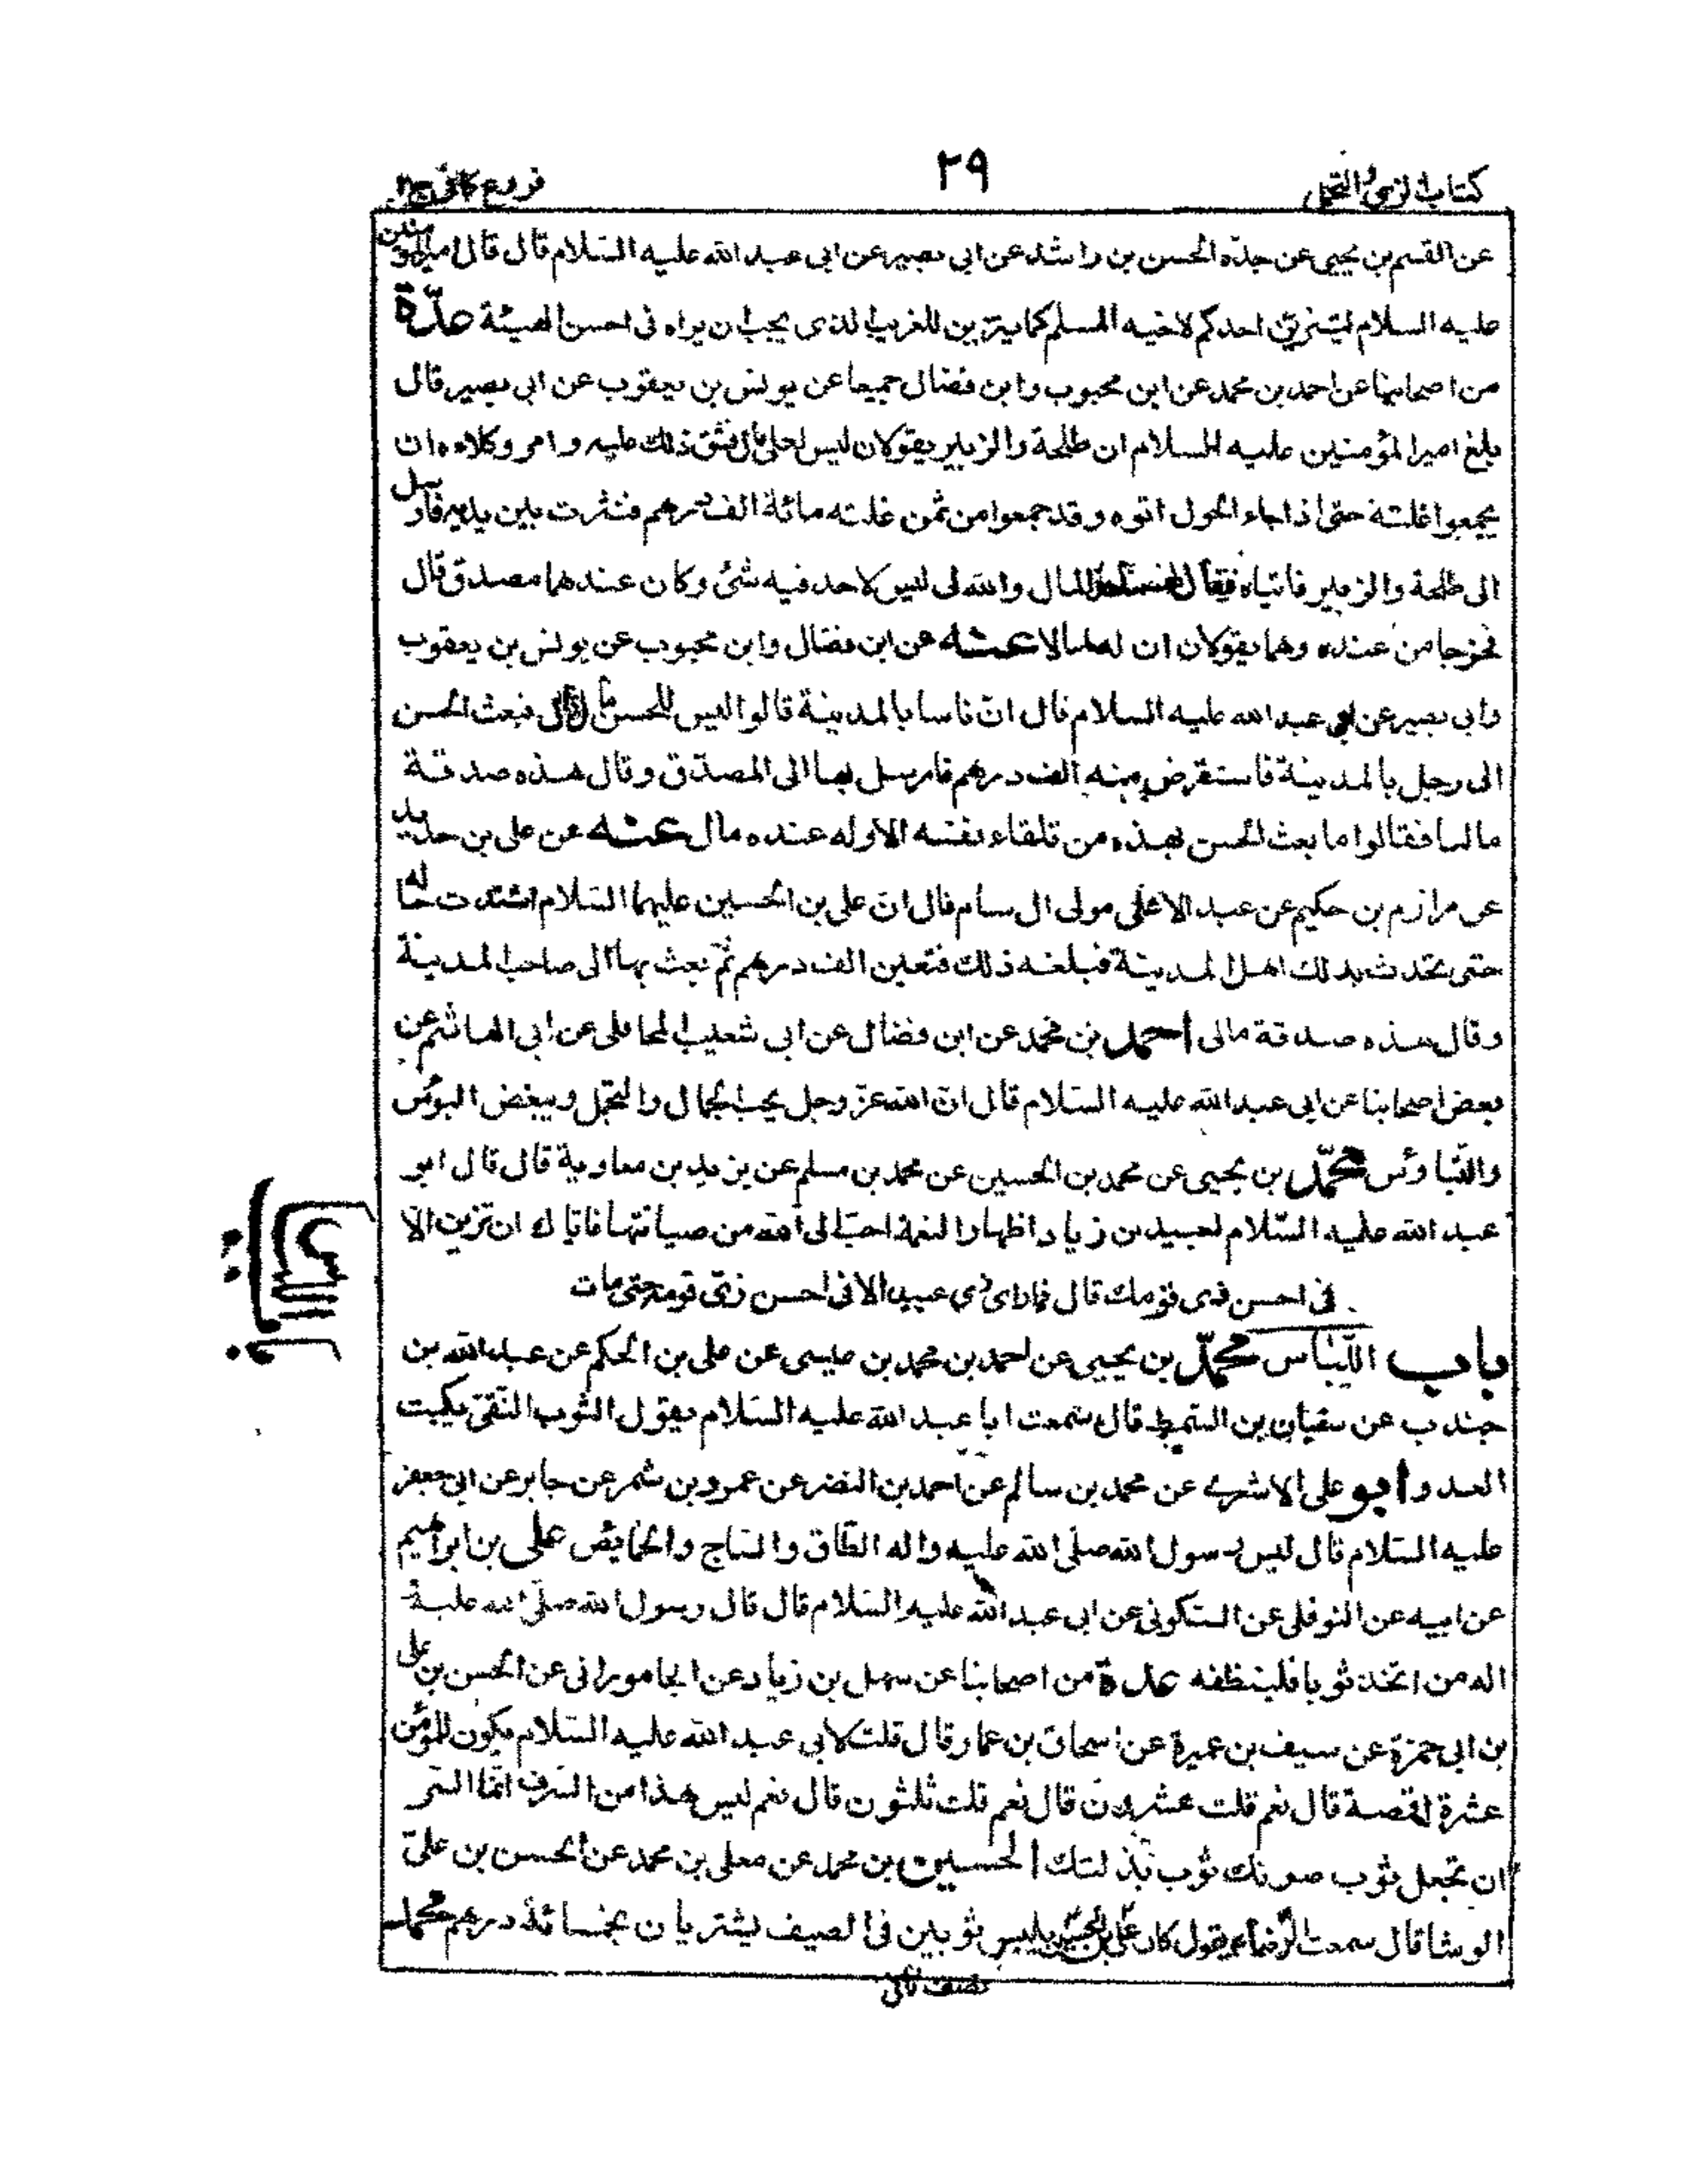 كتاب الزى والتجمل
٢٩
فروع كافى ج٢
عن القسم بن يحيى عن جده الحسن بن راشد عن ابى بصير عن ابى عبد الله عليه السلام قال قال امير المؤمنين
عليه السلام ليتزين احدكم لاخيه المسلم كما يتزين للغريب الذى يحب ان يراه فى احسن الهيئة عدّة
من اصحابنا عن احمد بن محمد عن ابن محبوب وابن فضال جميعا عن يونس بن يعقوب عن ابى بصير قال
بلغ امير المؤمنين عليه السلام ان طلحة والزبير يقولان ليس لعلى مال فشق ذلك عليه وامر وكلاءه ان
يجمعوا غلته حتى اذا جاء الحول اتوه وقد جمعوا من ثمن غلته مائة الف درهم فنثرت بين يديه فارسل
الى طلحة والزبير فاتياه فقال لهما هذا المال والله لى ليس لاحد فيه شئ وكان عندهما مصدق قال
فخرجا من عنده وهما يقولان ان له لمالا عنه عن ابن فضال وابن محبوب عن يونس بن يعقوب
وابى بصير عن ابى عبد الله عليه السلام قال انّ ناسا بالمدينة قالوا ليس للحسن مال فبعث الحسن
الى رجل بالمدينة فاستقرض منه الف درهم فارسل بها الى المصدّق وقال هذه صدقة
مالنا فقالوا ما بعث الحسن بهذه من تلقاء نفسه الا وله عنده مال عنه عن على بن حديد
عن مرازم بن حكيم عن عبد الاعلى مولى ال سام قال انّ على بن الحسين عليهما السّلام اشتدت حاله
حتى تحدث بذلك اهل المدينة فبلغه ذلك فتعين الف درهم ثمّ بعث بها الى صاحب المدينة
وقال هذه صدقة مالى احمد بن محمد عن ابن فضال عن ابى شعيب المحاملى عن ابى الهاشم عن
بعض اصحابنا عن ابى عبد الله عليه السّلام قال انّ الله عزّ وجل يحب الجمال والتجمّل ويبغض البؤس
والتّباؤس محمّد بن يحيى عن محمد بن الحسين عن محمد بن مسلم عن يزيد بن معاوية قال قال ابو
عبد الله عليه السّلام لعبيد بن زياد اظهار النعمة احبّ الى الله من صيانتها فاياك ان تزين الّا
فى احسن زى قومك قال فما رأى زي عبيد الا فى احسن زىّ قومه حتى مات
باب اللّباس محمّد بن يحيى عن احمد بن محمد بن عيسى عن على بن الحكم عن عبد الله بن
جندب عن سفيان بن السّمط قال سمعت ابا عبد الله عليه السّلام يقول الثوب النّقىّ يكبت
العدو ابو على الاشعرى عن محمد بن سالم عن احمد بن النضر عن عمرو بن شمر عن جابر عن ابى جعفر
عليه السّلام قال لبس رسول الله صلى الله عليه واله الطّاق والسّاج والخمايص على بن ابراهيم
عن ابيه عن النوفلى عن السّكونى عن ابى عبد الله عليه السّلام قال قال رسول الله صلّى الله عليه
اله من اتخذ ثوبا فلينظفه عدة من اصحابنا عن سهل بن زياد عن الجامورانى عن الحسن بن على
بن ابى حمزة عن سيف بن عميرة عن اسحاق بن عمار قال قلت لابى عبد الله عليه السّلام يكون للمؤمن
عشرة اقمصة قال نعم قلت عشرون قال نعم قلت ثلثون قال نعم ليس هذا من السّرف انّما السّر
ان تجعل ثوب صونك ثوب بذلتك الحسين بن محمد عن معلى بن محمد عن الحسن بن علىّ
الوشا قال سمعت الرّضا يقول كان على بن الحسين يلبس ثوبين فى الصيف يشتريان بخمسائة درهم محمد
نصف ثانى